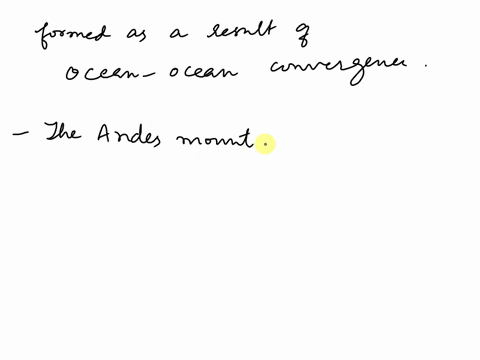 formed as a result of
ocean-ocean convergence.
- The Andes mount